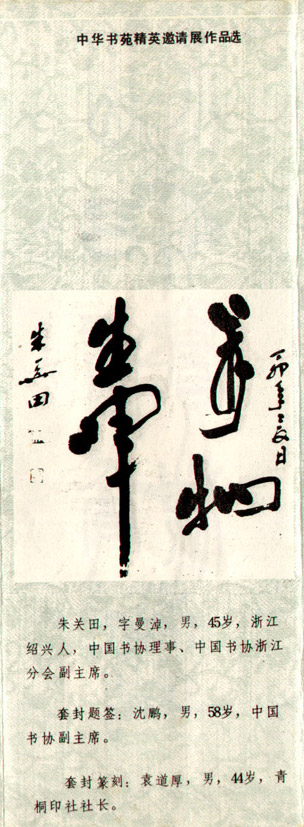 中华书苑精英邀请展作品选
丁卯年
萬物
生
朱关田
朱关田，字曼淖，男，45岁，浙江
绍兴人，中国书协理事、中国书协浙江
分会副主席。
套封题签：沈鹏，男，58岁，中国
书协副主席。
套封篆刻：袁道厚，男，44岁，青
桐印社社长。